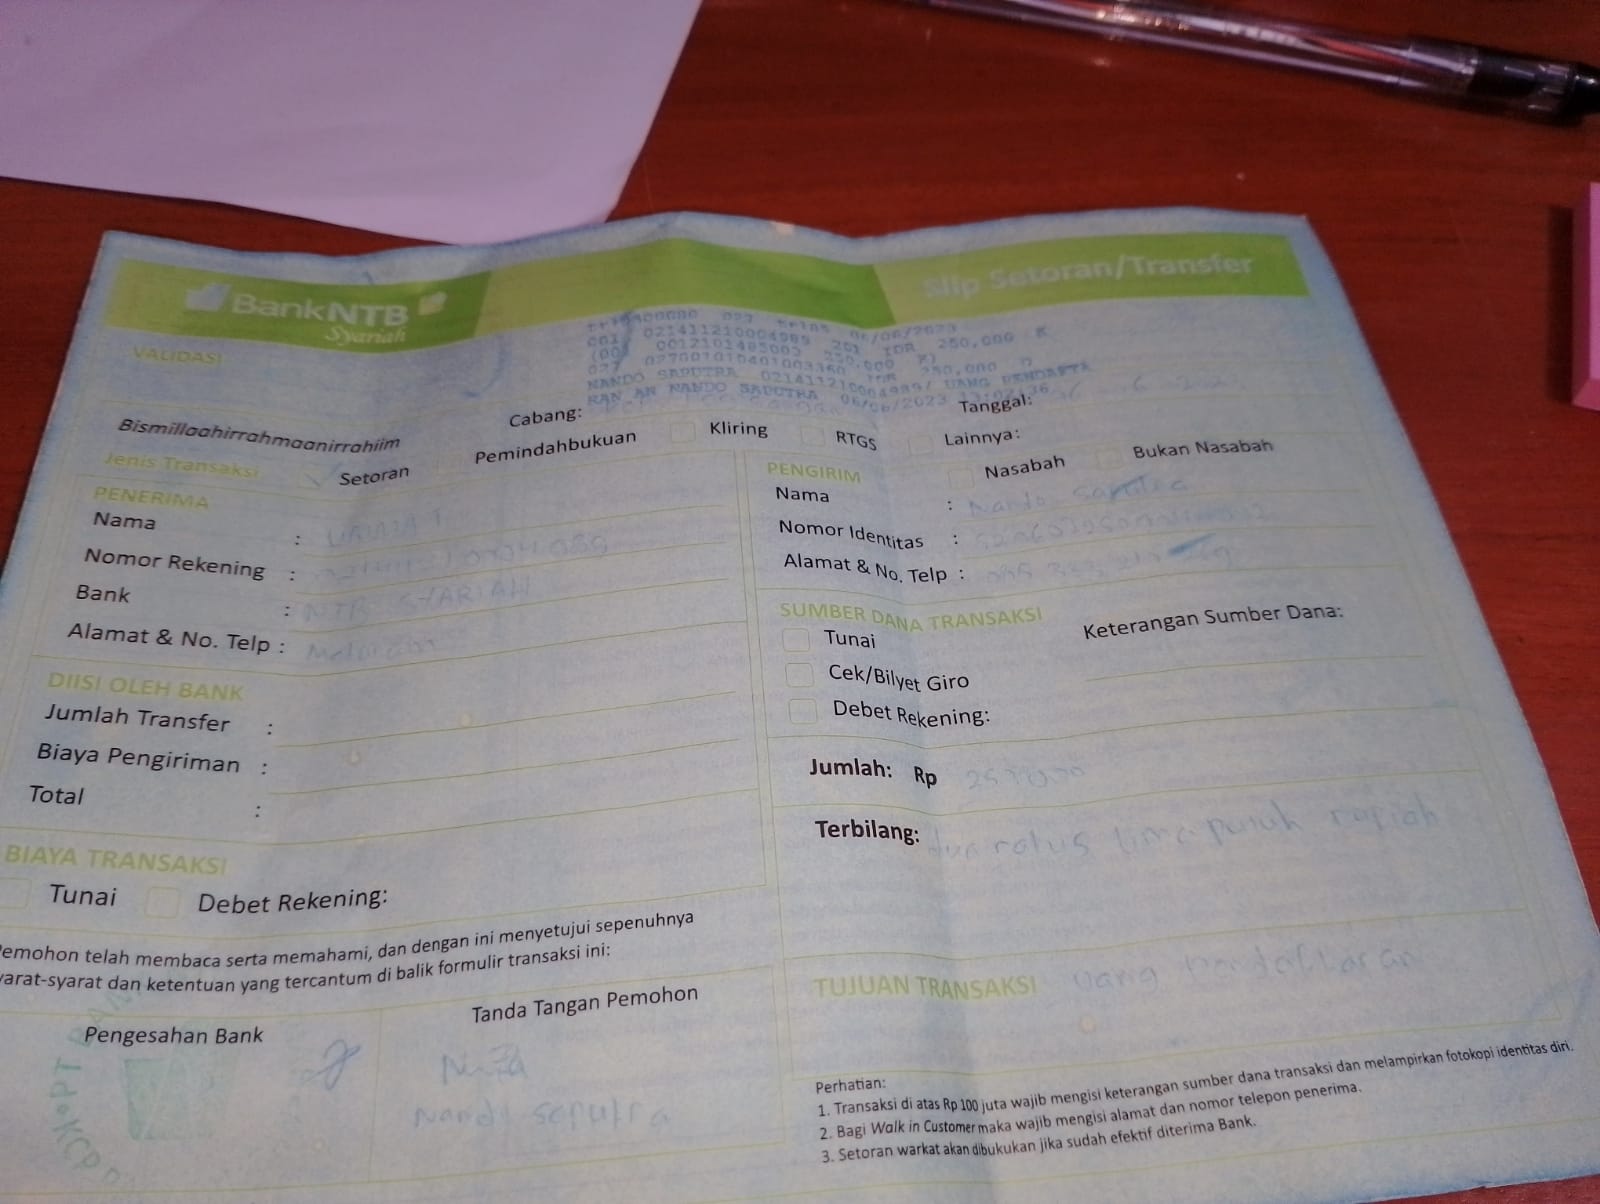 BankNTB
Syariah
Slip Setoran/Transfer
VALIDASI
06/06/2023
021411210004989 201 IDR 250,000 K
0012101485003 250,000 K)
027 027001010401003360 IDR 250,000 D
NANDO SAPUTRA 021411210004989/ UANG PENDAFTA
RAN AN NANDO SAPUTRA 06/06/2023
Bismillaahirrahmaanirrahiim
Cabang:
Tanggal:
Jenis Transaksi
Setoran
Pemindahbukuan
Kliring
RTGS
Lainnya:
PENERIMA
Nama :
Nomor Rekening :
Bank : NTB SYARIAH
Alamat & No. Telp : Mataram
DIISI OLEH BANK
Jumlah Transfer :
Biaya Pengiriman :
Total :
BIAYA TRANSAKSI
Tunai
Debet Rekening:
Pemohon telah membaca serta memahami, dan dengan ini menyetujui sepenuhnya
syarat-syarat dan ketentuan yang tercantum di balik formulir transaksi ini:
Pengesahan Bank
Tanda Tangan Pemohon
Nando saputra
PENGIRIM
Nasabah
Bukan Nasabah
Nama : Nando Saputra
Nomor Identitas :
Alamat & No. Telp :
SUMBER DANA TRANSAKSI
Keterangan Sumber Dana:
Tunai
Cek/Bilyet Giro
Debet Rekening:
Jumlah: Rp
Terbilang: dua ratus lima puluh rupiah
TUJUAN TRANSAKSI uang pendaftaran
Perhatian:
1. Transaksi di atas Rp 100 juta wajib mengisi keterangan sumber dana transaksi dan melampirkan fotokopi identitas diri.
2. Bagi Walk in Customer maka wajib mengisi alamat dan nomor telepon penerima.
3. Setoran warkat akan dibukukan jika sudah efektif diterima Bank.